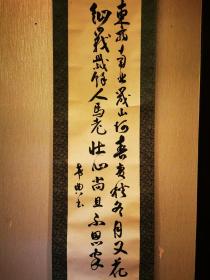 東西南北幾山河春夏秋冬月又花
征戰歲餘人馬老壯心尚且不思家
希典書